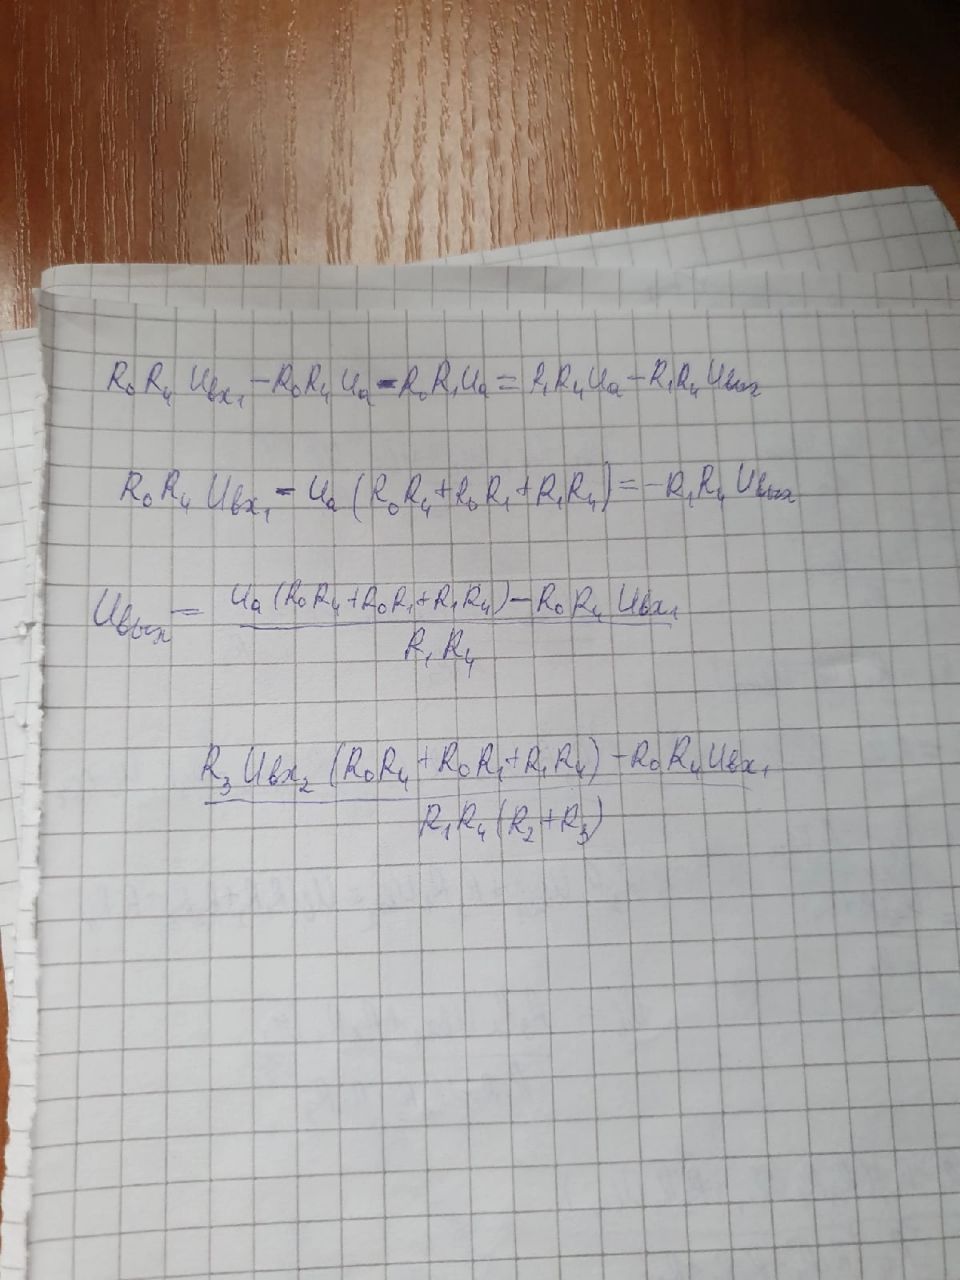 R₀R₄Uвх₁ − R₀R₄Uₐ − R₀R₁Uₐ = R₁R₄Uₐ − R₁R₄Uвых
R₀R₄Uвх₁ − Uₐ(R₀R₄+R₀R₁+R₁R₄) = −R₁R₄Uвых
Uвых = Uₐ(R₀R₄+R₀R₁+R₁R₄) − R₀R₄Uвх₁
R₁R₄
R₃Uвх₂(R₀R₄+R₀R₁+R₁R₄) − R₀R₄Uвх₁
R₁R₄(R₂+R₃)